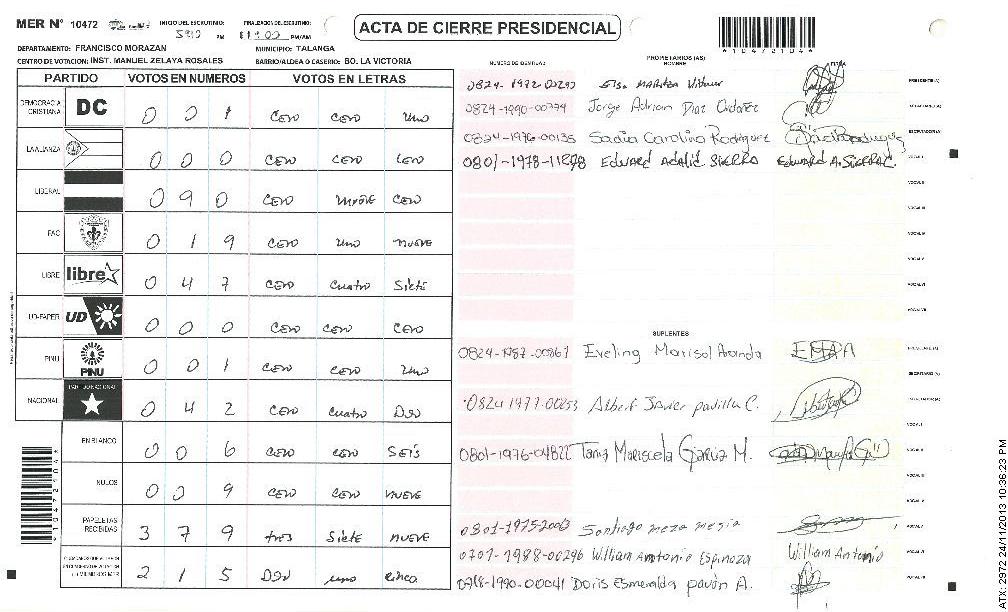 MER N° 10472
INICIO DEL ESCRUTINIO: PM
FINALIZACION DEL ESCRUTINIO: PM/AM
ACTA DE CIERRE PRESIDENCIAL
*10472104*
DEPARTAMENTO: FRANCISCO MORAZAN MUNICIPIO: TALANGA
CENTRO DE VOTACION: INST. MANUEL ZELAYA ROSALES BARRIO/ALDEA O CASERIO: BO. LA VICTORIA
PARTIDO VOTOS EN NUMEROS VOTOS EN LETRAS
DEMOCRACIA CRISTIANA DC 0 0 1 cero cero uno
LA ALIANZA 0 0 0 cero cero cero
LIBERAL 0 9 0 cero nueve cero
PAC 0 1 9 cero uno nueve
LIBRE libre 0 4 7 cero cuatro siete
UD-FAPER UD 0 0 0 cero cero cero
PINU PINU 0 0 1 cero cero uno
NACIONAL PARTIDO NACIONAL 0 4 2 cero cuatro dos
EN BLANCO 0 0 6 cero cero seis
NULOS 0 0 9 cero cero nueve
PAPELETAS RECIBIDAS 3 7 9 tres siete nueve
2 1 5 dos uno cinco
NUMERO DE IDENTIDAD PROPIETARIOS (AS) NOMBRE FIRMA
0824-1972-00297 PRESIDENTE(A)
0824-1990-00794 Jorge Adrian Diaz Ordoñez SECRETARIO(A)
0824-1976-00135 Sadia Carolina Rodriguez ESCRUTADOR(A)
0801-1978-11898 Edward Adalid Sierra Edward A. Sierra C. VOCAL I
VOCAL II
VOCAL III
VOCAL IV
VOCAL V
VOCAL VI
VOCAL VII
SUPLENTES
0824-1987-00867 Eveling Marisol Aranda EMAA PRESIDENTE(A)
SECRETARIO(A)
0824 1977-00253 Albert Javier padilla C. ESCRUTADOR(A)
VOCAL I
0801-1976-04822 Tania Mariscela Garcia M. VOCAL II
VOCAL III
VOCAL IV
Santiago meza mejia VOCAL V
0701-1988-00296 William Antonio Espinoza William Antonio VOCAL VI
Doris Esmeralda pavón A. VOCAL VII
*10472104*
ATX 2972 24/11/2013 10:36:23 PM